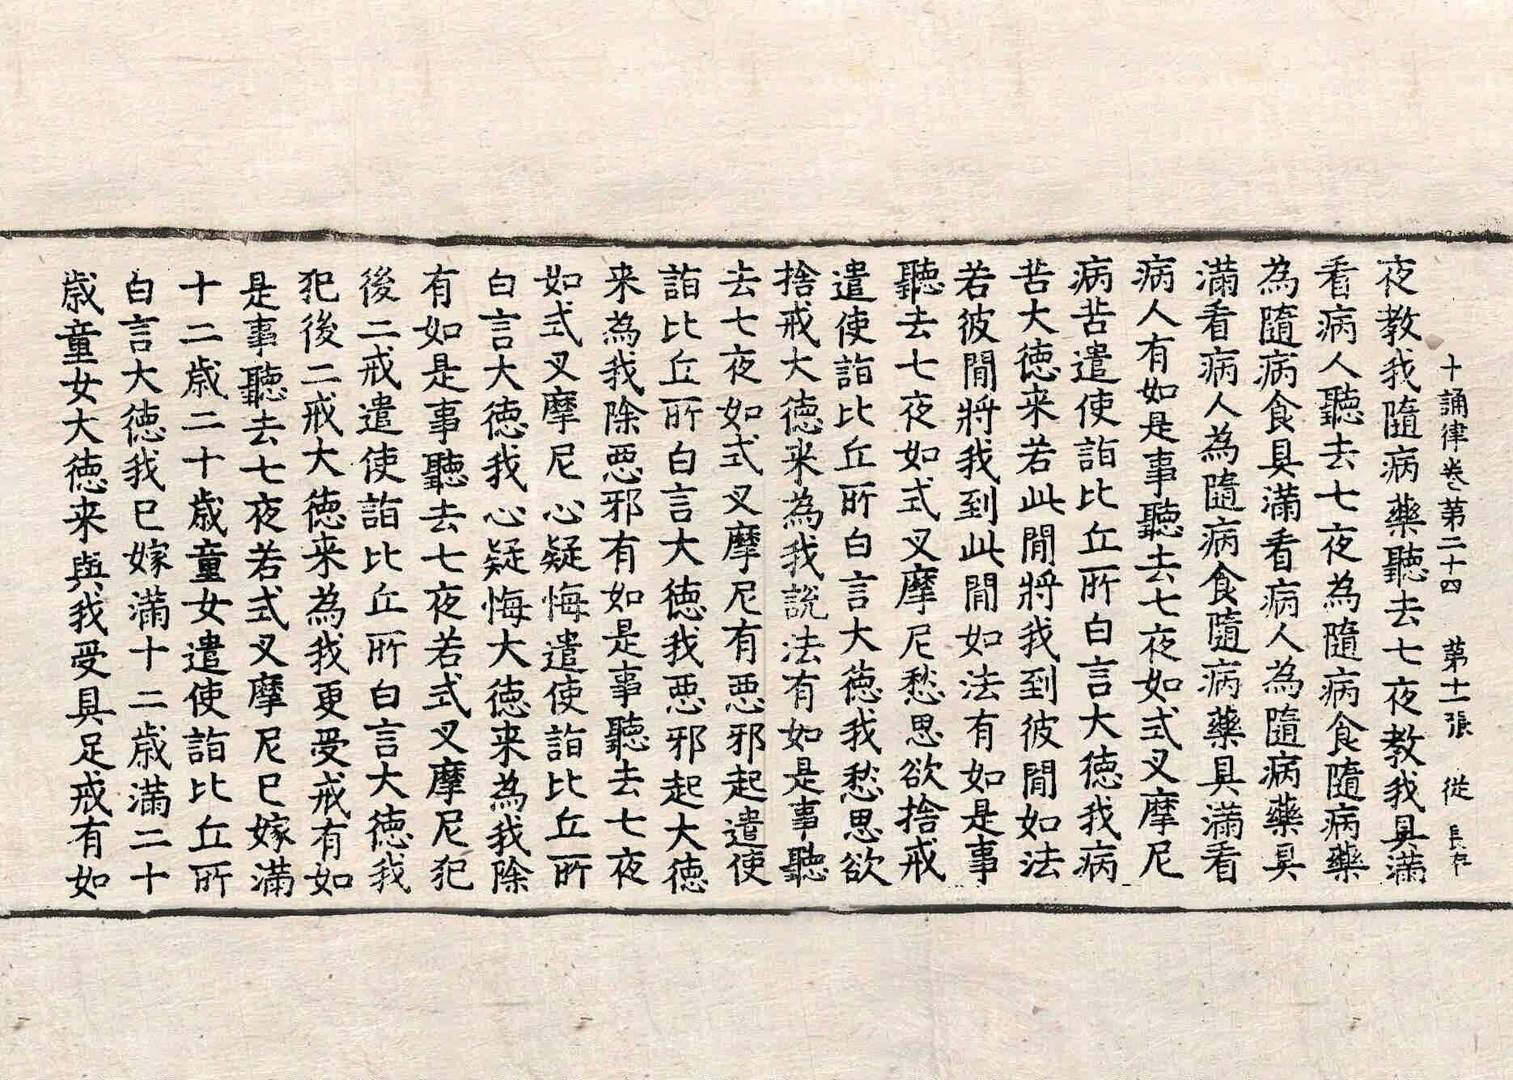 十誦律卷第二十四 第十一張 從 長存
夜教我隨病藥聽去七夜教我具滿
看病人聽去七夜為隨病食隨病藥
為隨病食具滿看病人為隨病藥具
滿看病人為隨病食隨病藥具滿看
病人有如是事聽去七夜如式叉摩尼
病苦遣使詣比丘所白言大徳我病
苦大徳来若此閒將我到彼閒如法
若彼閒將我到此閒如法有如是事
聽去七夜如式叉摩尼愁思欲捨戒
遣使詣比丘所白言大徳我愁思欲
捨戒大徳来為我說法有如是事聽
去七夜如式叉摩尼有惡邪起遣使
詣比丘所白言大徳我惡邪起大徳
来為我除惡邪有如是事聽去七夜
如式叉摩尼心疑悔遣使詣比丘所
白言大徳我心疑悔大徳来為我除
有如是事聽去七夜若式叉摩尼犯
後二戒遣使詣比丘所白言大徳我
犯後二戒大徳来為我更受戒有如
是事聽去七夜若式叉摩尼已嫁滿
十二歳二十歳童女遣使詣比丘所
白言大徳我已嫁滿十二歳滿二十
歳童女大徳来與我受具足戒有如